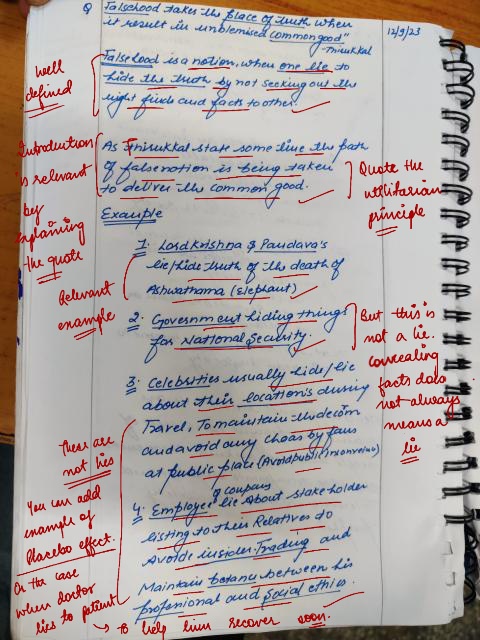 Q Falsehood takes the place of truth when
it result in unblemised common good"
-Thirukkal
12/9/23
Falsehood is a notion, when one lie to
hide the truth by not seeking out the
right finds and facts to other.
well
defined
Introduction
is relevant
by
explaining
the quote
As Thirukkal state some time the path
of false notion is being taken
to deliver the common good.
Quote the
utilitarian
principle
Example
1. Lord Krishna & Pandava's
lie/hide truth of the death of
Ashwathama (Elephant)
Relevant
example
2. Government hiding things
for National Security.
But this is
not a lie.
concealing
facts does
not always
means a
lie
3. Celebrities usually hide/lie
about their location's during
Travel, To maintain
and avoid any chaos by fans
at public place (Avoid public)
These are
not lies
You can add
example of
Placebo effect.
Or the case
when doctor
lies to patient
→ to help him recover soon.
4. Employee lie About stakeholder
listing to their Relatives to
Avoide insider Trading and
Maintain between his
professional and social ethics.